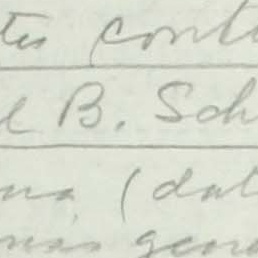 tes conti
l B. Sch
na (dat
mas gene